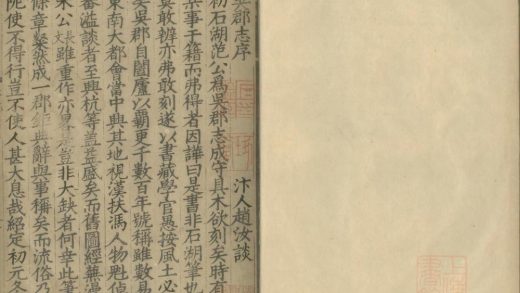 吳郡志序 汴人趙汝談
初石湖范公爲吳郡志成守具木欲刻矣時有
某事于籍而弗得者因譁曰是書非石湖筆也
莫敢辨亦弗敢刻遂以書藏學官愚按風土必
矣吳郡自闔廬以霸更千數百年號稱雖數易
東南大都會當中興其地視漢扶馮人物魁倬
蕃溢談者至與杭等蓋益盛矣而舊圖經蕪漫
朱公長文雖重作亦略是豈非大缺者何幸此筆
條章粲然成一郡鉅典辭與事稱矣而流俗乃
阨使不得行豈不使人甚大息哉紹定初元冬